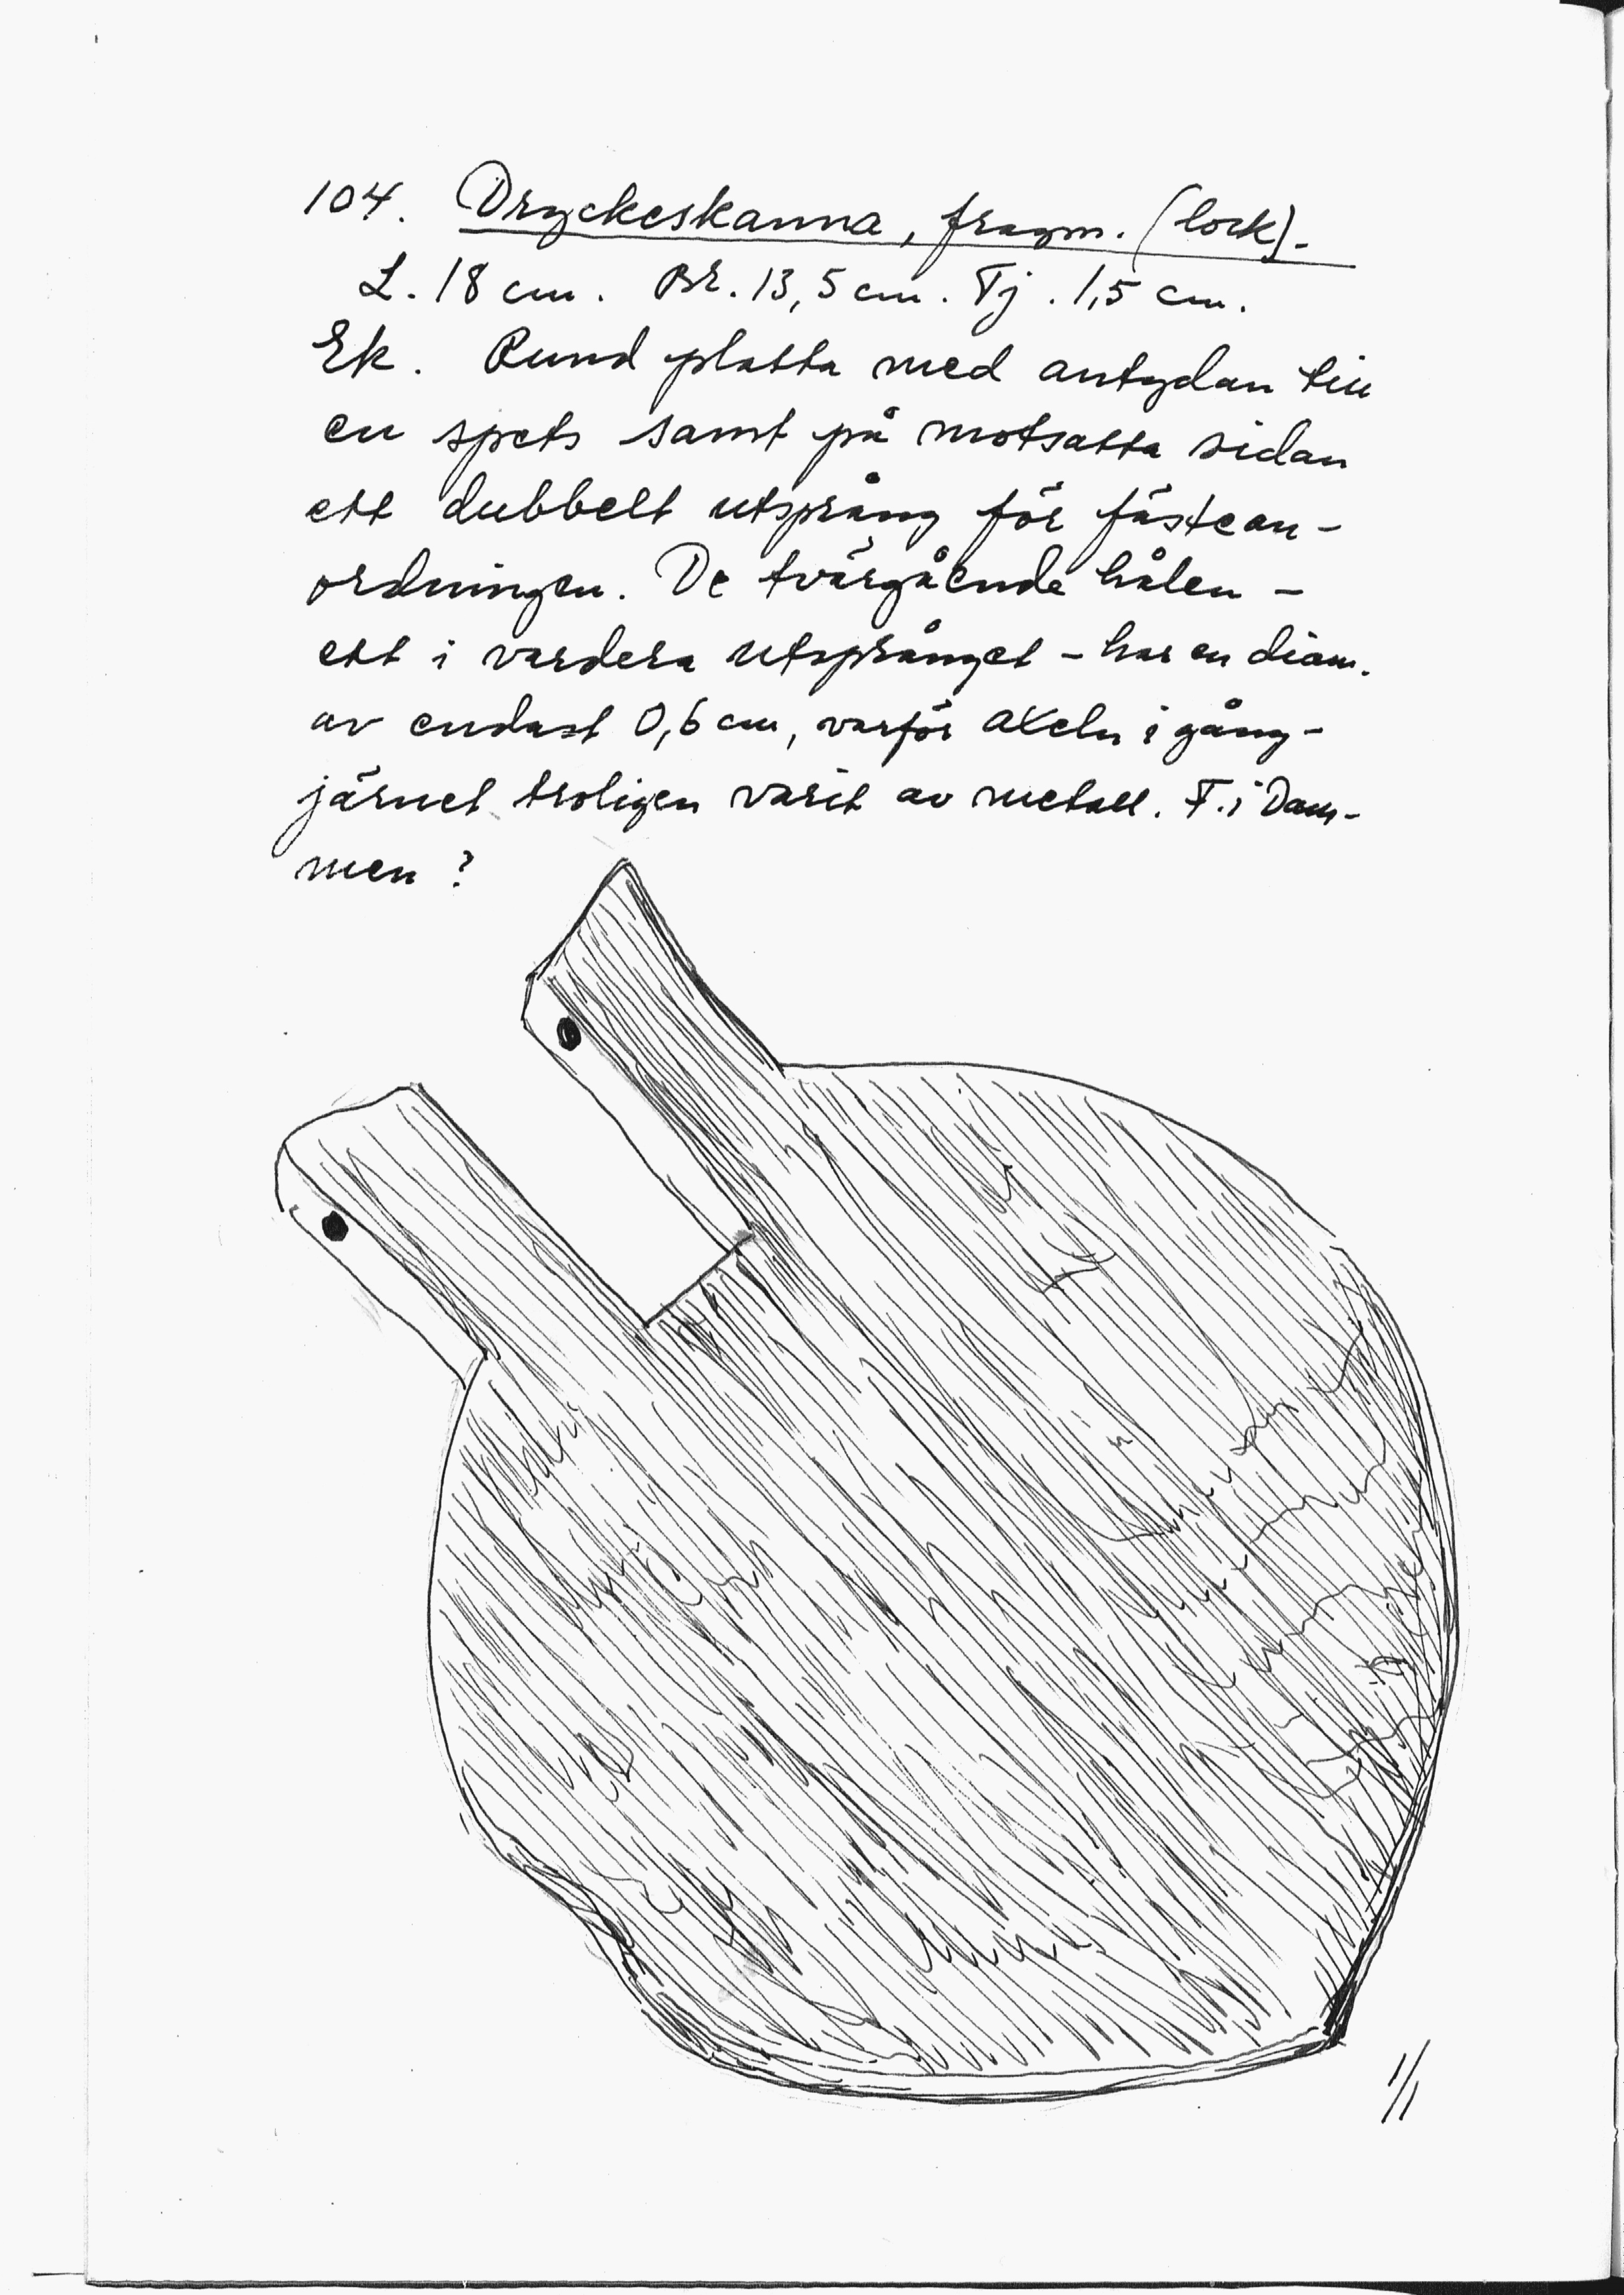 104. Dryckeskanna, fragm. (lock).
L. 18 cm. Br. 13,5 cm. Tj. 1,5 cm.
Ek. Rund platta med antydan till
en spets samt på motsatta sidan
ett dubbelt utsprång för fästean-
ordningen. De tvärgående hålen -
ett i vardera utsprånget - har en diam.
av endast 0,6 cm, varför axeln i gång-
järnet troligen varit av metall. F. i Dam-
men?
1/1